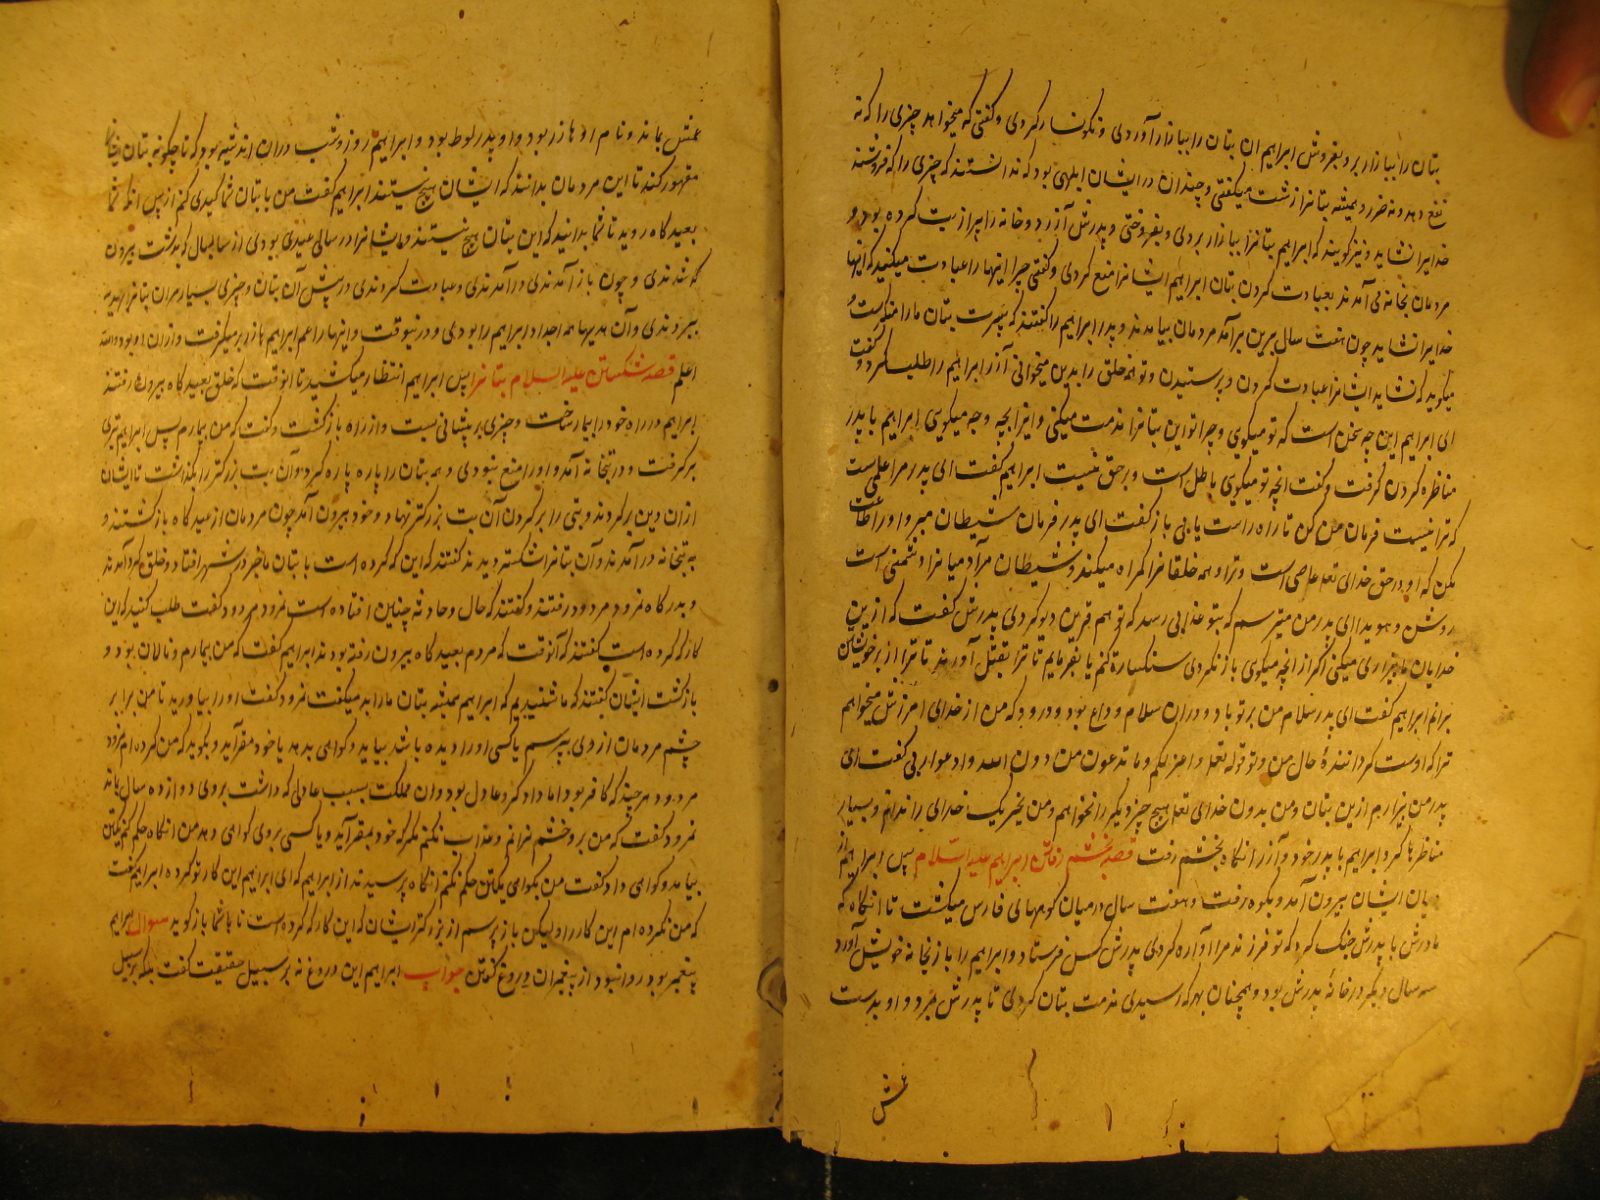 بتان را ببازار بر و بفروش ابراهیم ان بتان را ببازار آوردی و نکونسار کردی و کفتی که میخواهد چیزی را که نه
نفع دهد و نه ضرر و همیشه بتانرا زشت میکفتی و چندان در ایشان ابلهی بود که ندانستند که چیزی را که فروشند
خدایرا نشاید و نیز کویند که ابراهیم بتانرا ببازار بردی و بفروختی و پدرش آزر دو خانه را پر از بت کرده بود و
مردمان بخانه می آمدند بعبادت کردن بتان ابراهیم ایشانرا منع کردی و کفتی چرا اینها را عبادت میکنید که اینها
خدایرا نشاید چون هفت سال برین برآمد مردمان بیامدند و پدر ابراهیم را کفتند که پسرت بتان ما را منکر است و
میکوید که نشاید ایشانرا عبادت کردن و پرستیدن و تو همه خلق را بدین میخوانی آزر ابراهیم را طلب کرد و کفت
ای ابراهیم این چه سخن است که تو میکویی و چرا تو این بتانرا مذمت میکنی و ایزا بچه وجه میکویی ابراهیم با پدر
مناظره کردن کرفت و کفت انچه تو میکویی باطل است و برحق نیست ابراهیم کفت ای پدر مرا علمی است
که ترا نیست فرمان من کن تا راه راست یابی باز کفت ای پدر فرمان شیطان مبر و او را طاعت
مکن که او در حق خدای تعلی عاصی است و ترا و همه خلقانرا کمراه میکند و شیطان مر آدمیانرا دشمنی است
روشن و هویدا ای پدر من میترسم که بتو عذابی رسد که تو هم قرین دیو کردی پدرش کفت که از ین
خدایان ما بیزاری میکنی اکر از انچه میکوی باز نکردی سنکسارت کنم یا بفرمایم تا ترا بقتل آورند تا ترا از بر خویشتن
برانم ابراهیم کفت ای پدر سلام من بر تو باد و در ان سلام وداع بود و درود که من از خدای امرزش میخواهم
ترا که اوست کرداننده حال من و تو قوله تعلی و اعتزلکم و ما تدعون من دون الله و ادعوا ربی کفت ای
پدر من بیزارم ازین بتان و من بدون خدای تعلی هیچ چیز دیکر را نخواهم و من بجز یک خدای را ندانم و بسیار
مناظرها کرد ابراهیم با پدر خود و آزر انکاه بخشم رفت قصه بخشم رفتن ابراهیم علیه السلام پس ابراهیم از
میان ایشان بیرون آمد و بکوه رفت و هفت سال در میان کوههای فارس میکشت تا انکاه که
مادرش با پدرش جنک کرد که تو فرزند مرا آواره کردی پدرش کس فرستاد و ابراهیم را باز بخانه خویش آورد
سه سال دیکر در خانه پدرش بود و همچنان بهر که رسیدی مذمت بتان کردی تا پدرش بمرد و او بدست
عمش
عمش بماند و نام او هازر بود و او پدر لوط بود و ابراهیم روز و شب دران اندیشه بود که تا چکونه بتان ایشانرا
مقهور کند تا این مردمان بدانند که ایشان هیچ نیستند ابراهیم کفت من با بتان شما کیدی کنم از پس انکه شما
بعیدکاه روید تا شما بدانید که این بتان هیچ نیستند و ایشانرا در سالی عیدی بودی از سالها که بدشت بیرون
شدندی و چون باز آمدندی در آمدندی و عبادت کردندی در پیش آن بتان و چیزی بسیار مران بتانرا هدیه
ببردندی و آن هدیها همه اجداد ابراهیم را بودی و در نیوقت و اینها را عم ابراهیم هازر برمیکرفت و ازان او بود والله
اعلم قصه شکستن علیه السلام بتانرا پس ابراهیم انتظار میکشید تا انوقت که خلق بعیدکاه بیرون رفتند
ابراهیم در راه خود را بیمار ساخت و چیزی بر پیشانی بست و از راه باز کشت و کفت که من بیمارم پس ابراهیم تبری
برکرفت و در بتخانه آمد و او را منع نبودی و همه بتان را پاره پاره کرد و آن بت بزرکتر را بکذاشت تا ایشان
ازان دین برکردند و تبر را بر کردن آن بت بزرکتر نهاد و خود بیرون آمد چون مردمان از عیدکاه بازکشتند و
به بتخانه در آمدند و آن بتانرا شکسته دیدند کفتند که این که کرده است با بتان ما خبر در شهر افتاد و خلق کرد آمدند
و بدرکاه نمرود مردود رفتند و کفتند که حال و حادثه چنین افتاده است نمرود مردود کفت طلب کنید که این
کار که کرده است کفتند که آنوقت که مردم بعیدکاه بیرون رفته بودند ابراهیم کفت که من بیمارم و نالان بود و
بازکشت ایشان کفتند که ما شنیدیم که ابراهیم همیشه بتان ما را بد میکفت نمرود کفت او را بیاورید تا من برابر
چشم مردمان از وی بپرسم یا کسی او را دیده باشد بیاید و کواهی بدهد یا خود مقر آید و بکوید که من کرده ام نمرود
مردود هر چند که کافر بود اما داد کرد و عادل بود و ان مملکت بسبب عدلی که داشت بروی دوازده سال بماند
نمرود کفت که من بروی خشم نرانم و عذاب نکنم مکر که خود بمقر آید و یا کسی بروی کواهی دهد من انکاه حکم کنم یکتن
بیامد و کواهی داد کفت من بکواهی یکتن حکم نکنم انکاه پرسیدند از ابراهیم که ای ابراهیم این کار تو کرده ابراهیم کفت
که من نکرده ام این کار را ولیکن باز پرسم از بزرکتر ایشان که این کار که کرده است تا با شما باز کوید سوال ابراهیم
پیغمبر بود روا نبود از پیغمبران دروغ کفتن جواب ابراهیم این دروغ نه بر سبیل حقیقت کفت بلکه بر سبیل